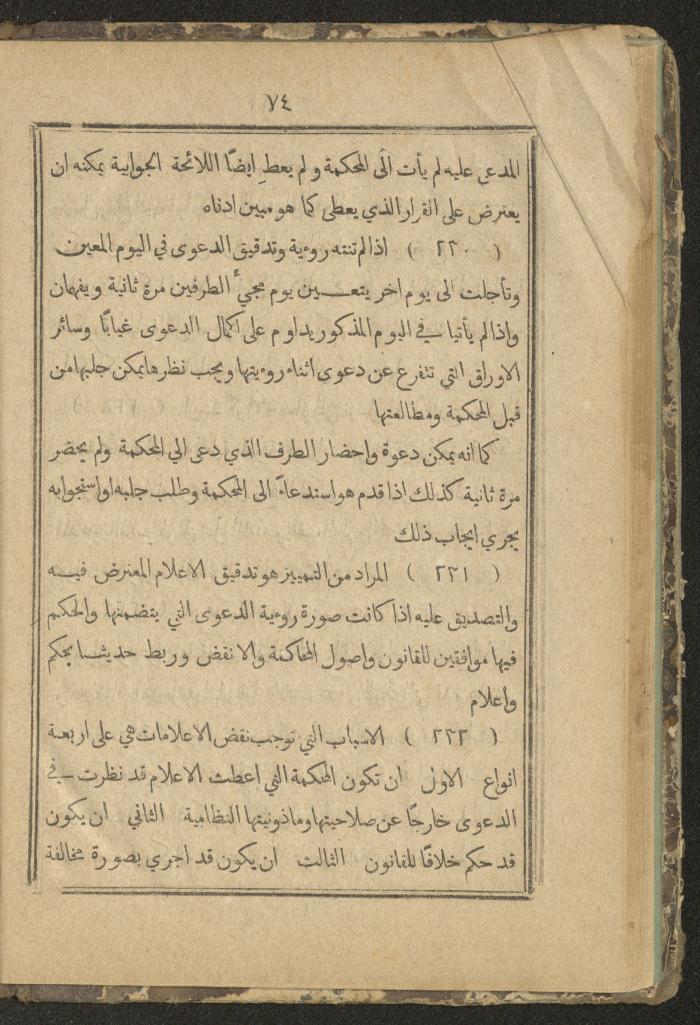 ٧٤
المدعى عليه لم يأت الى المحكمة ولم يعطِ ايضًا اللائحة الجوابية يمكنه ان
يعترض على القرار الذي يعطى كما هو مبين ادناه
( ٢٢٠ ) اذا لم تنته روءية وتدقيق الدعوى في اليوم المعين
وتأجلت الى يوم اخر يتعين يوم مجيء الطرفين مرة ثانية ويفهمان
واذا لم يأتيا في اليوم المذكور يداوم على اكمال الدعوى غيابًا وسائر
الاوراق التي تتفرع عن دعوى اثناء روءيتها ويجب نظرها يمكن جلبها من
قبل المحكمة ومطالعتها
كما انه يمكن دعوة واحضار الطرف الذي دعى الى المحكمة ولم يحضر
مرة ثانية كذلك اذا قدم هو استدعاءً الى المحكمة وطلب جلبه او استجوابه
يجري ايجاب ذلك
( ٢٢١ ) المراد من التمييز هو تدقيق الاعلام المعترض فيه
والتصديق عليه اذا كانت صورة روءية الدعوى التي يتضمنها والحكم
فيها موافقين للقانون واصول المحاكمة والا نقض وربط حديثًا بحكم
واعلام
( ٢٢٢ ) الاسباب التي توجب نقض الاعلامات هي على اربعة
انواع الاول ان تكون المحكمة التي اعطت الاعلام قد نظرت في
الدعوى خارجًا عن صلاحيتها وماذونيتها النظامية الثاني ان يكون
قد حكم خلافًا للقانون الثالث ان يكون قد اجري بصورة مخالفة